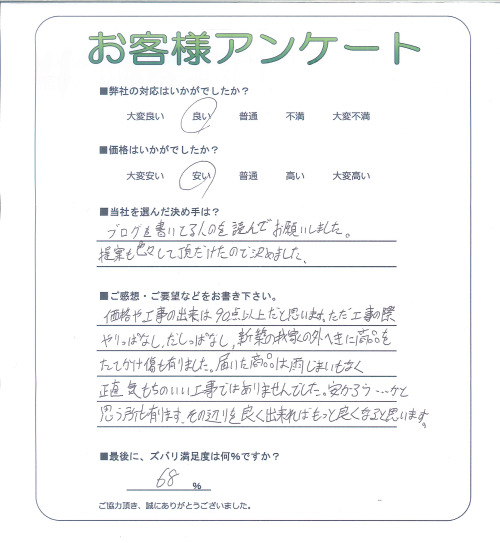 お客様アンケート
■弊社の対応はいかがでしたか？
大変良い 良い 普通 不満 大変不満
■価格はいかがでしたか？
大変安い 安い 普通 高い 大変高い
■当社を選んだ決め手は？
ブログを書いてる人のを読んでお願いしました。
提案も色々して頂だけたので決めました。
■ご感想・ご要望などをお書き下さい。
価格や工事の出来は90点以上だと思います。ただ工事の際
やりっぱなし、だしっぱなし、新築の我家の外へきに商品を
たてかけ傷も有りました。届いた商品は雨じまいもなく
正直気もちのいい工事ではありませんでした。安かろう…かと
思う所も有ります。その辺りを良く出来ればもっと良くなると思います。
■最後に、ズバリ満足度は何%ですか？
68 %
ご協力頂き、誠にありがとうございました。